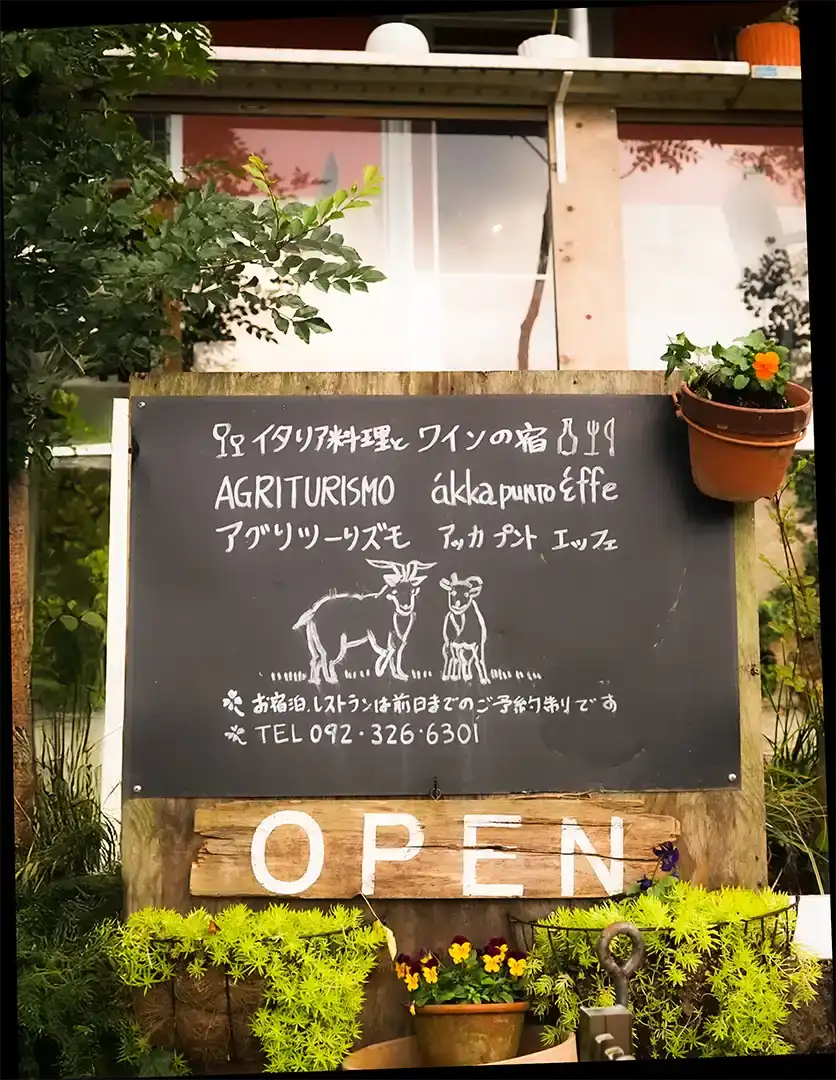 イタリア料理と ワインの宿
AGRITURISMO ákkapunto éffe
アグリツーリズモ アッカ プント エッフェ
お宿泊、レストランは前日までのご予約制です
TEL 092・326・6301
OPEN